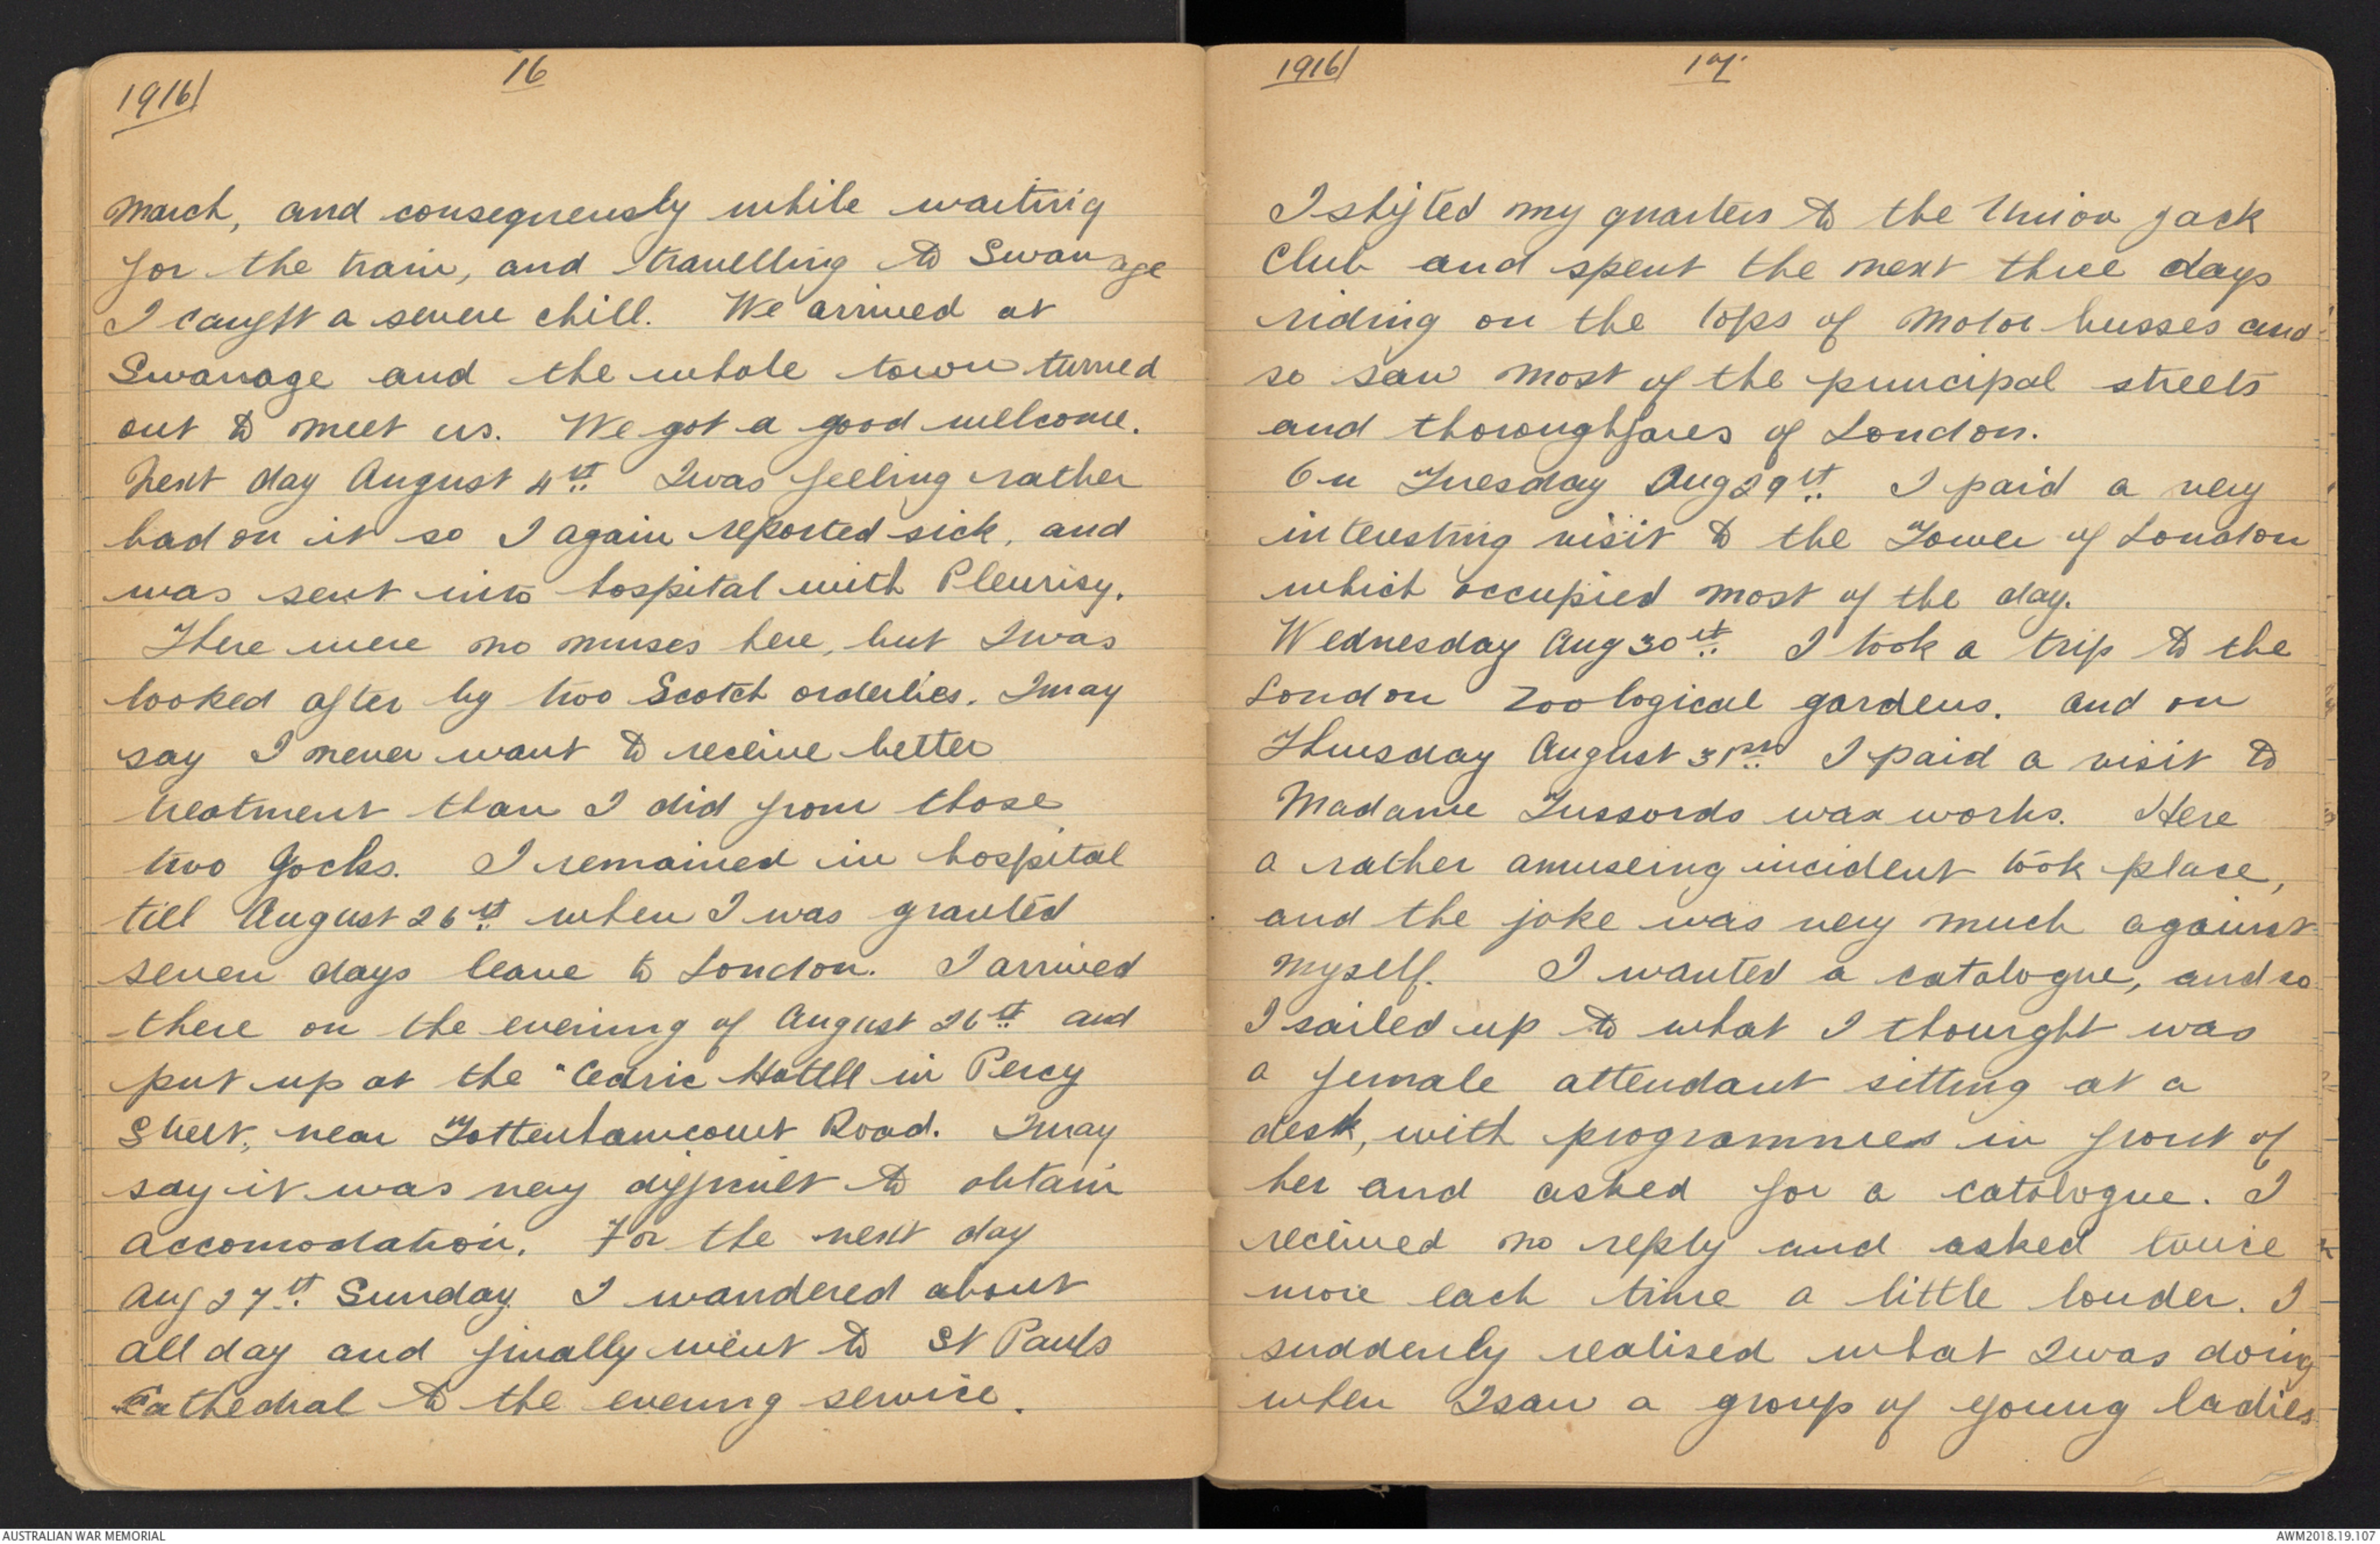 1916/
16
March, and consequently while waiting
for the train, and travelling to Swanage
I caught a severe chill. We arrived at
Swanage and the whole town turned
out to meet us. We got a good welcome.
Next day August 4th. I was feeling rather
bad on it so I again reported sick, and
was sent into hospital with Pleurisy.
There were no nurses here, but I was
looked after by two Scotch orderlies. I may
say I never want to receive better
treatment than I did from those
two Jocks. I remained in hospital
till August 26th when I was granted
seven days leave to London. I arrived
there on the evening of August 26th and
put up at the "Cedric Hotell in Percy
Street, near Tottenhamcourt Road. I may
say it was very difficult to obtain
accomodation. For the next day
Aug 27th. Sunday I wandered about
all day and finally went to St Pauls
Cathedral to the evening service.
1916/
17.
I shifted my quarters to the Union Jack
Club and spent the next three days
riding on the tops of Motor busses and
so saw most of the principal streets
and thoroughfares of London.
On Tuesday Aug 29th. I paid a very
interesting visit to the Tower of London
which occupied most of the day.
Wednesday Aug 30th. I took a trip to the
London Zoological gardens. And on
Thursday August 31st. I paid a visit to
Madame Tussords wax works. Here
a rather amuseing incident took place,
and the joke was very much against
myself. I wanted a catalogue, and so
I sailed up to what I thourght was
a female attendant sitting at a
desk, with programmes in front of
her and asked for a catalogue. I
received no reply and asked twice
more each time a little louder. I
suddenly realised what I was doing
when I saw a group of young ladies
AUSTRALIAN WAR MEMORIAL
AWM2018.19.107